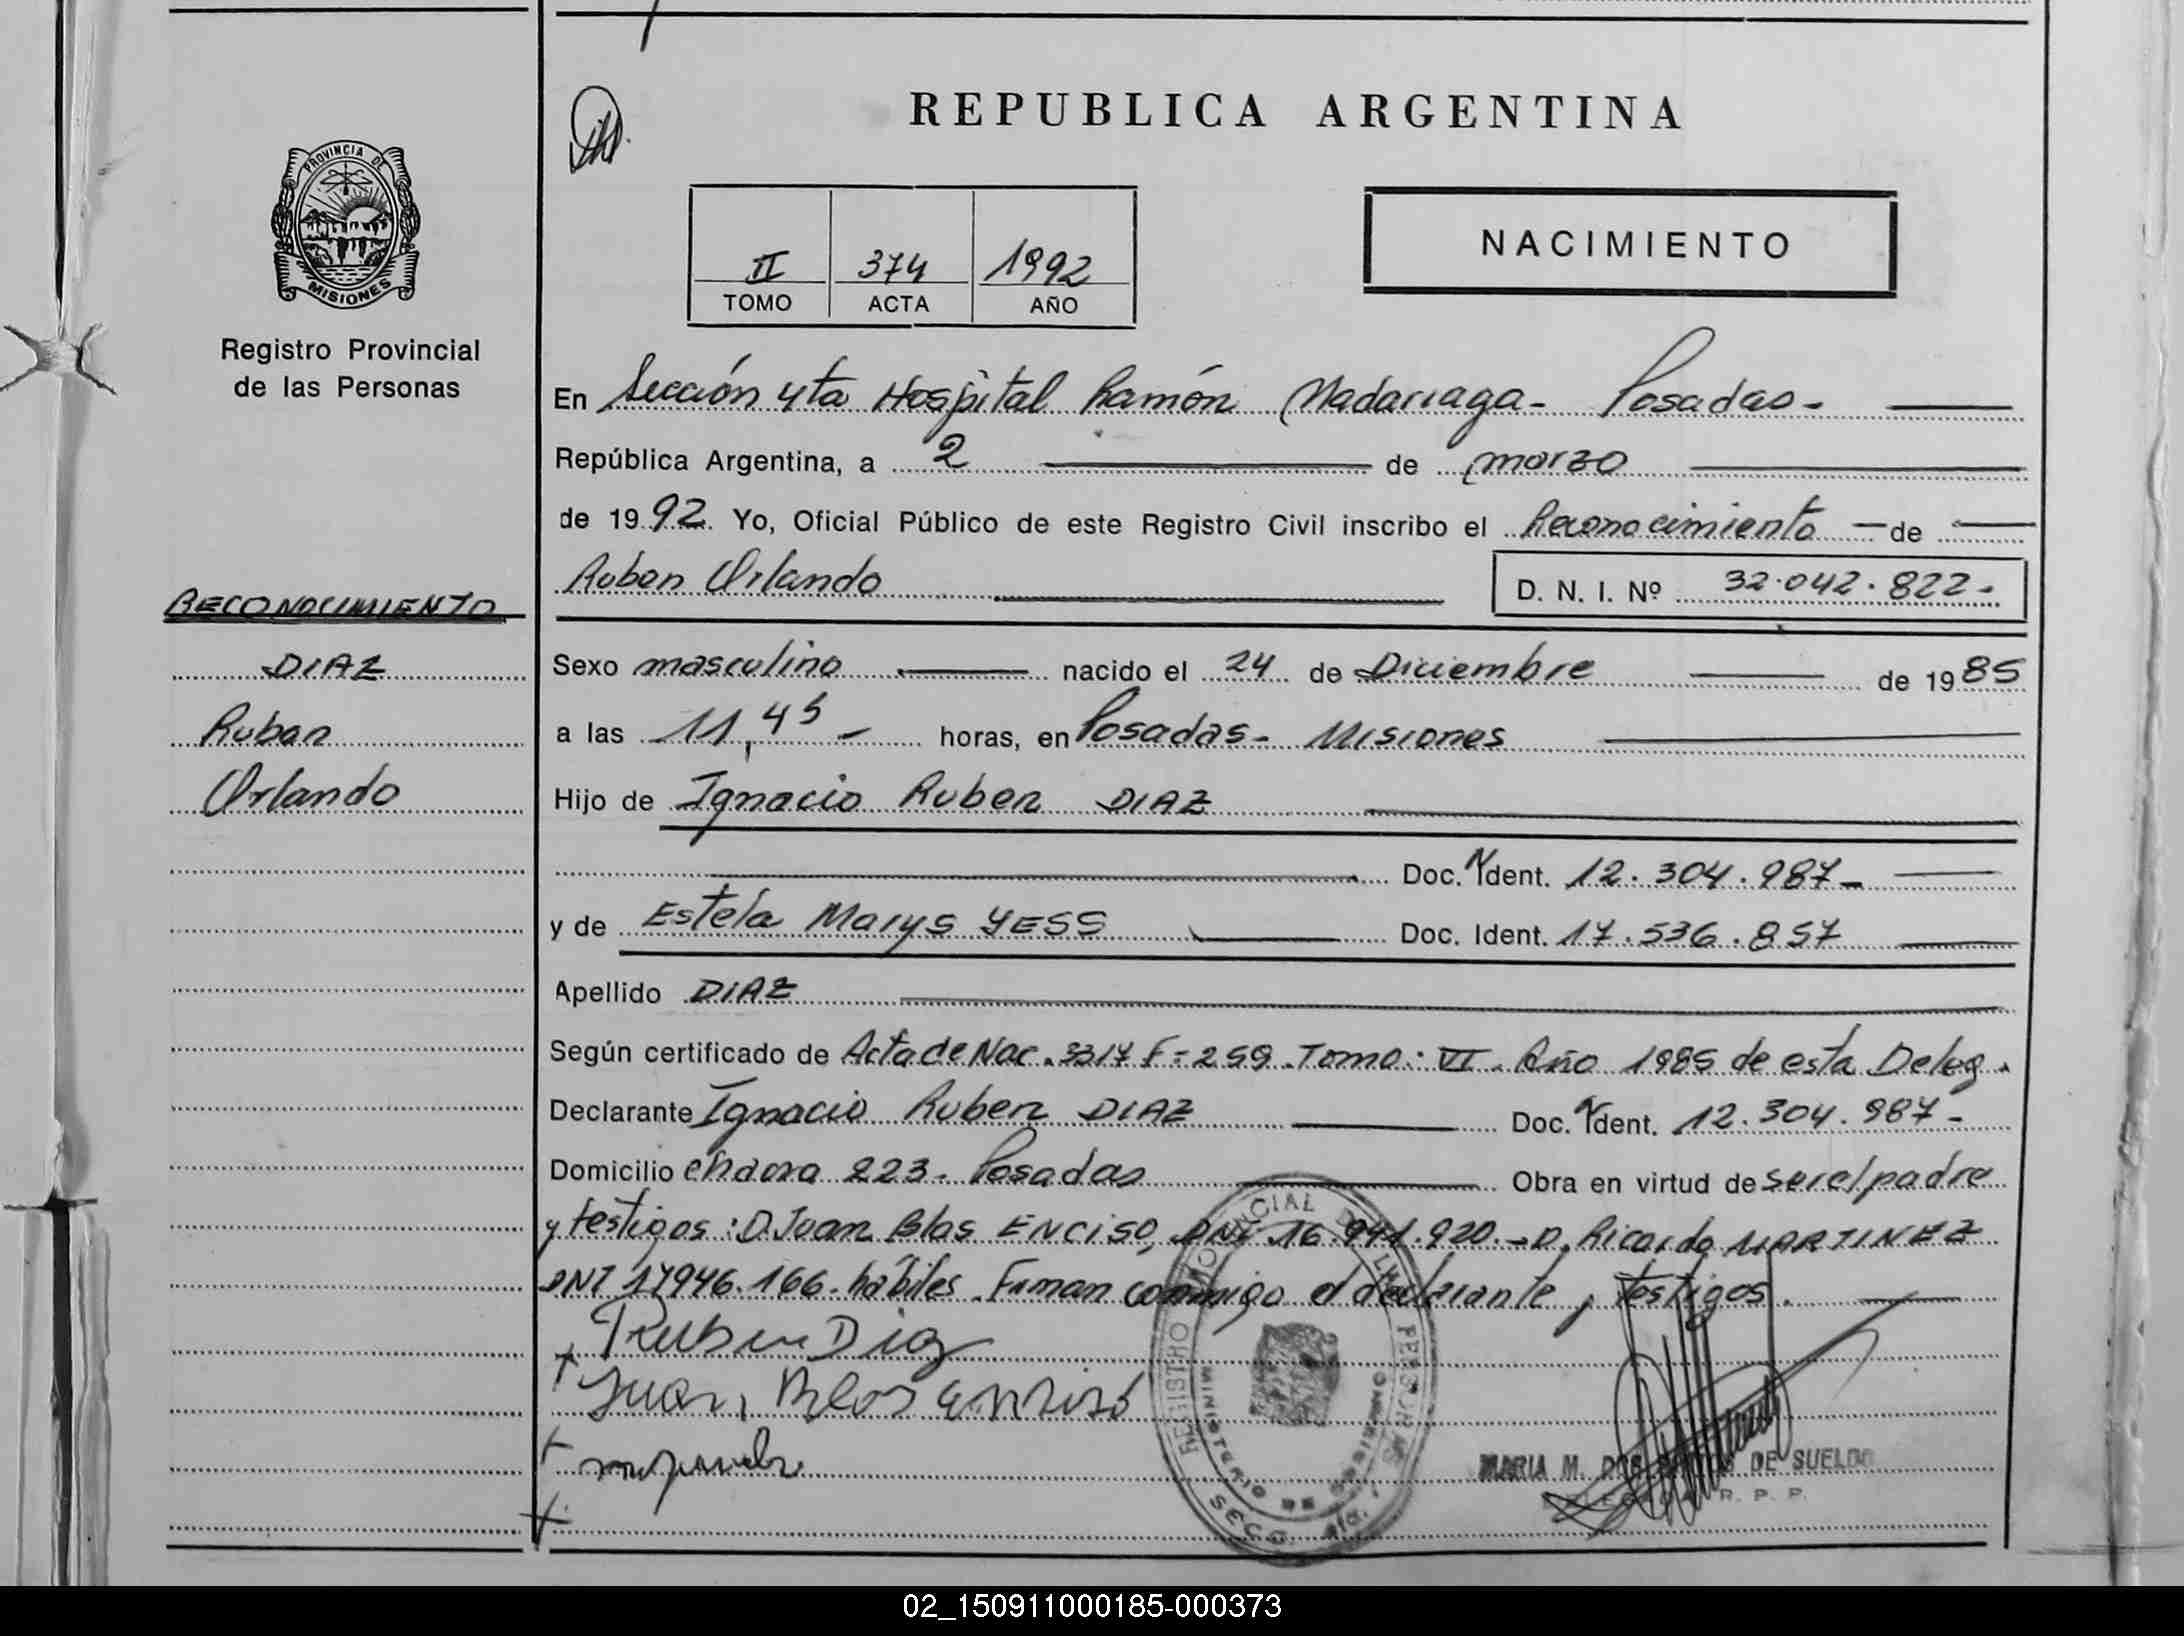 REPUBLICA ARGENTINA
PROVINCIA DE
MISIONES
Registro Provincial
de las Personas
II 374 1992
TOMO ACTA AÑO
NACIMIENTO
En Sección 4ta Hospital Ramón Madariaga- Posadas-
República Argentina, a 2 de marzo
de 1992. Yo, Oficial Público de este Registro Civil inscribo el Reconocimiento de
Ruben Orlando D. N. I. Nº 32.042.822-
RECONOCIMIENTO
DIAZ
Ruben
Orlando
Sexo masculino nacido el 24 de Diciembre de 1985
a las 11,45 - horas, en Posadas- Misiones
Hijo de Ignacio Ruben DIAZ
Doc. Ident. 12.304.987-
y de Estela Marys YESS Doc. Ident. 17.536.857
Apellido DIAZ
Según certificado de Acta de Nac. 3317 F=259. Tomo: VI. Año 1985 de esta Deleg.
Declarante Ignacio Ruben DIAZ Doc. Ident. 12.304.987-
Domicilio chacra 223- Posadas Obra en virtud de ser el padre
y testigos: D. Juan Blas ENCISO, DNI 16.941.920.- D. Ricardo MARTINEZ
DNI 17946.166. hábiles. Firman conmigo el declarante y testigos.
Ruben Diaz
Juan Blas Enciso
REGISTRO PROVINCIAL DE LAS PERSONAS
MINISTERIO DE GOBIERNO
SECC. 4ta.
MARIA M. DOS SANTOS DE SUELDO
DELEGADA R. P. P.
02_150911000185-000373